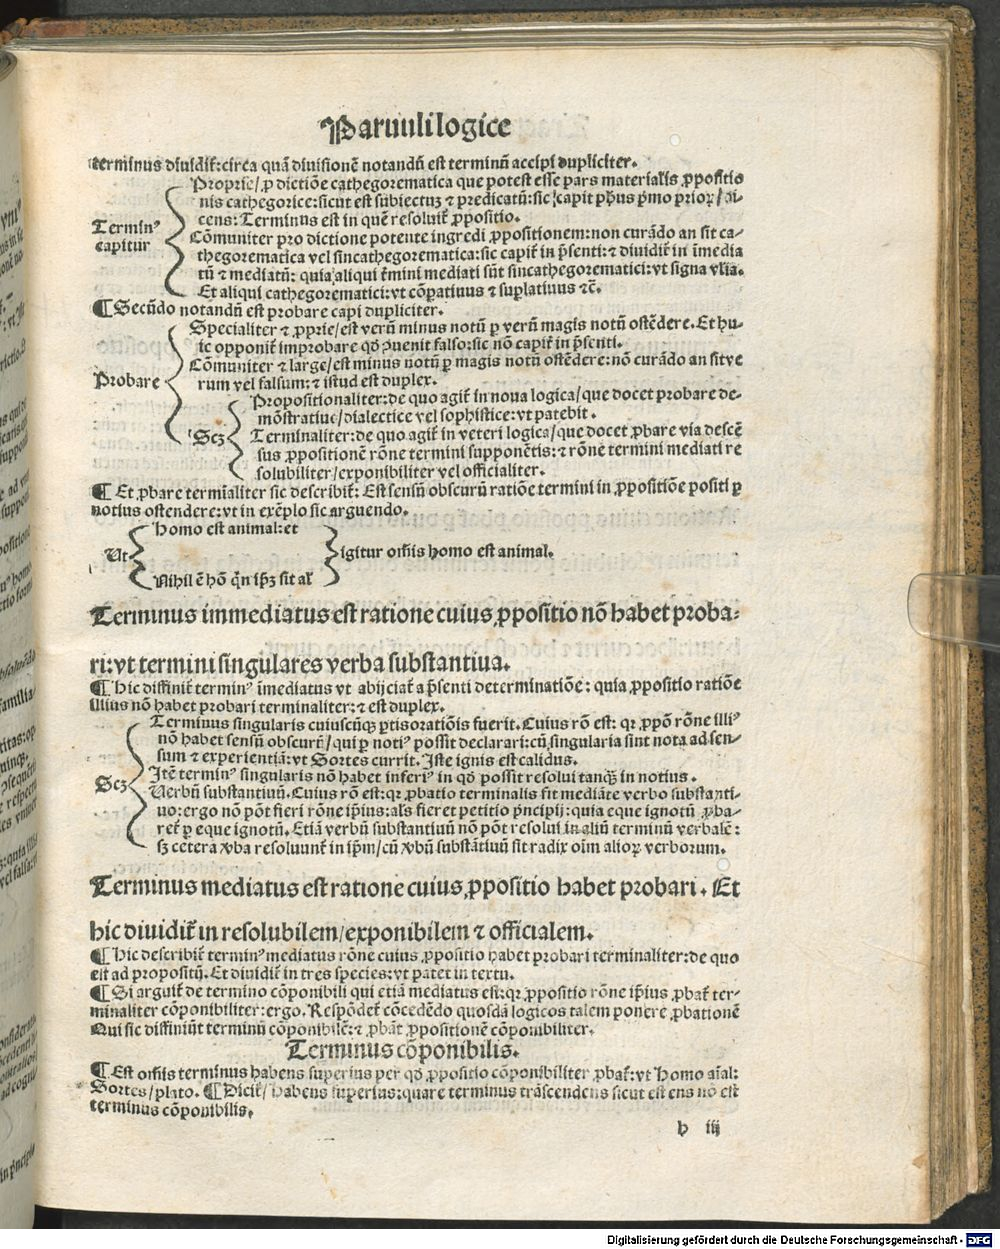 Paruuli logice
terminus diuidit̃: circa quā diuisionē notandū est terminū accipi dupliciter.
Proprie/ ꝓ dictiōe cathegorematica que potest esse pars materialis ꝓpositio
nis cathegorice: sicut est subiectuꝫ ⁊ predicatū: sic capit ph̄us pͥmo prioꝝ/ di-
cens: Terminus est in quē resoluit̃ ꝓpositio.
Terminꝰ
capitur
Cōmuniter pro dictione potente ingredi ꝓpositionem: non curādo an sit ca-
thegorematica vel sincathegorematica: sic capit̃ in p̄senti: ⁊ diuidit̃ in īmedia
tū ⁊ mediatū: quia aliqui t̃mini mediati sūt sincathegorematici: vt signa vl̃ia.
Et aliqui cathegorematici: vt cōꝑatiuus ⁊ suꝑlatiuus ⁊ cē.
¶ Secūdo notandū est probare capi dupliciter.
Specialiter ⁊ ꝓprie/ est verū minus notū ꝑ verū magis notū ostēdere. Et hu-
ic opponit̃ improbare qd̓ ꝯuenit falso: sic nō capit̃ in p̄senti.
Probare
Cōmuniter ⁊ large/ est minus notū ꝑ magis notū ostēdere: nō curādo an sit ve
rum vel falsum: ⁊ istud est duplex.
Propositionaliter: de quo agit̃ in noua logica/ que docet probare de-
mōstratiue/ dialectice vel sophistice: vt patebit.
Scꝫ
Terminaliter: de quo agit̃ in veteri logica/ que docet ꝓbare via descē
sus ꝓpositionē rōne termini supponētis: ⁊ rōne termini mediati re
solubiliter/ exponibiliter vel officialiter.
¶ Et ꝓbare termīaliter sic describit̃: Est sensū obscurū ratiōe termini in ꝓpositiōe positi ꝑ
notius ostendere: vt in exēplo sic arguendo.
Homo est animal: et
Ut
igitur om̄is homo est animal.
Nihil ē hō qn̄ ip̄ꝫ sit al̓
Terminus immediatus est ratione cuius ꝓpositio nō habet proba-
ri: vt termini singulares verba substantiua.
¶ Hic diffinit̃ terminꝰ īmediatus vt abijciat̃ a p̄senti determinatiōe: quia ꝓpositio ratiōe
illius nō habet probari terminaliter: ⁊ est duplex.
Terminus singularis cuiuscūqꝫ ꝑtis oratiōis fuerit. Cuius rō est: qꝛ ꝓpō rōne illiꝰ
nō habet sensū obscurū/ qui ꝑ notiꝰ possit declarari: cū singularia sint nota ad sen-
sum ⁊ experientiā: vt Sortes currit. Iste ignis est calidus.
Itē terminꝰ singularis nō habet inferiꝰ in qd̓ possit resolui tanqꝫ in notius.
Scꝫ
Uerbū substantiuū. Cuius rō est: qꝛ ꝓbatio terminalis fit mediāte verbo substanti-
uo: ergo nō pōt fieri rōne ip̄ius: al̓s fieret petitio pͥncipij: quia eque ignotū ꝓba-
ret̃ ꝑ eque ignotū. Etiā verbū substantiuū nō pōt resolui in aliū terminū verbalē:
sꝫ cetera v̓ba resoluunt̃ in ip̄m/ cū v̓bū substātiuū sit radix oīm alioꝝ verborum.
Terminus mediatus est ratione cuius ꝓpositio habet probari. Et
hic diuidit̃ in resolubilem/ exponibilem ⁊ officialem.
¶ Hic describit̃ terminꝰ mediatus rōne cuius ꝓpositio habet probari terminaliter: de quo
est ad propositū. Et diuidit̃ in tres species: vt patet in textu.
¶ Si arguit̃ de termino cōponibili qui etiā mediatus est: qꝛ ꝓpositio rōne ip̄ius ꝓbat̃ ter-
minaliter cōponibiliter: ergo. Respōdet̃ cōcedēdo quosdā logicos talem ponere ꝓbationē
Qui sic diffiniūt terminū cōponibilē: ⁊ ꝓbāt ꝓpositionē cōponibiliter.
Terminus cōponibilis.
¶ Est om̄is terminus habens superius per qd̓ ꝓpositio cōponibiliter ꝓbat̃: vt Homo aīal:
Sortes/ plato. ¶ Dicit̃/ habens superius: quare terminus trāscendens sicut est ens nō est
terminus cōponibilis.
h iij
Digitalisierung gefördert durch die Deutsche Forschungsgemeinschaft - DFG